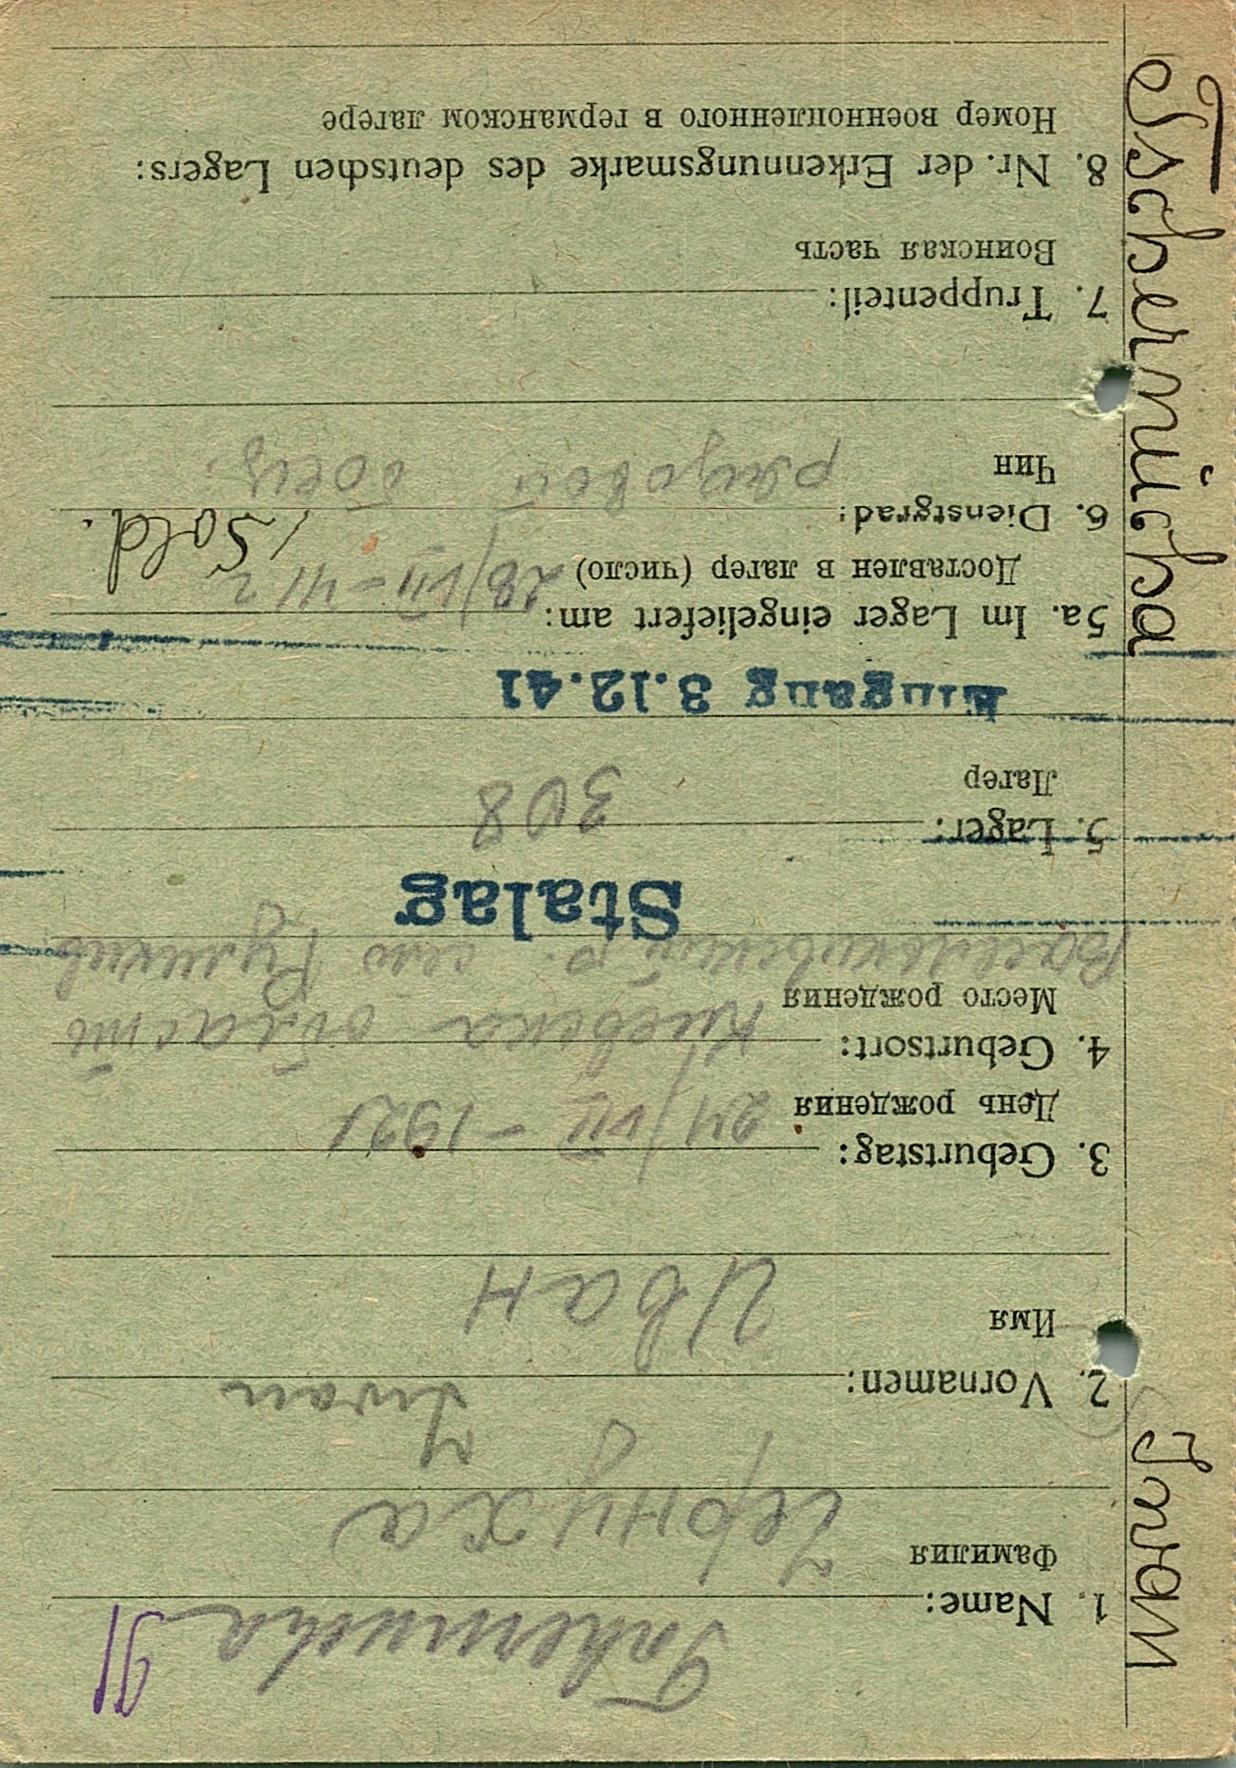 91
Tschernucha
1. Name:
Фамилия
Чернуха
Iwan
2. Vornamen:
Имя
Иван
3. Geburtstag:
День рождения
24/VII – 1921
4. Geburtsort:
Киевска область
Место рождения
Васильковский р. село Руликив
Stalag
5. Lager:
308
Лагер
Eingang 3.12.41
5a. Im Lager eingeliefert am:
Доставлен в лагер (число)
28/VII – 41 г
/ Sold.
6. Dienstgrad:
Чин
рядовой боец.
7. Truppenteil:
Воинская часть
8. Nr. der Erkennungsmarke des deutschen Lagers:
Номер военнопленного в германском лагере
Tschernücha Iwan